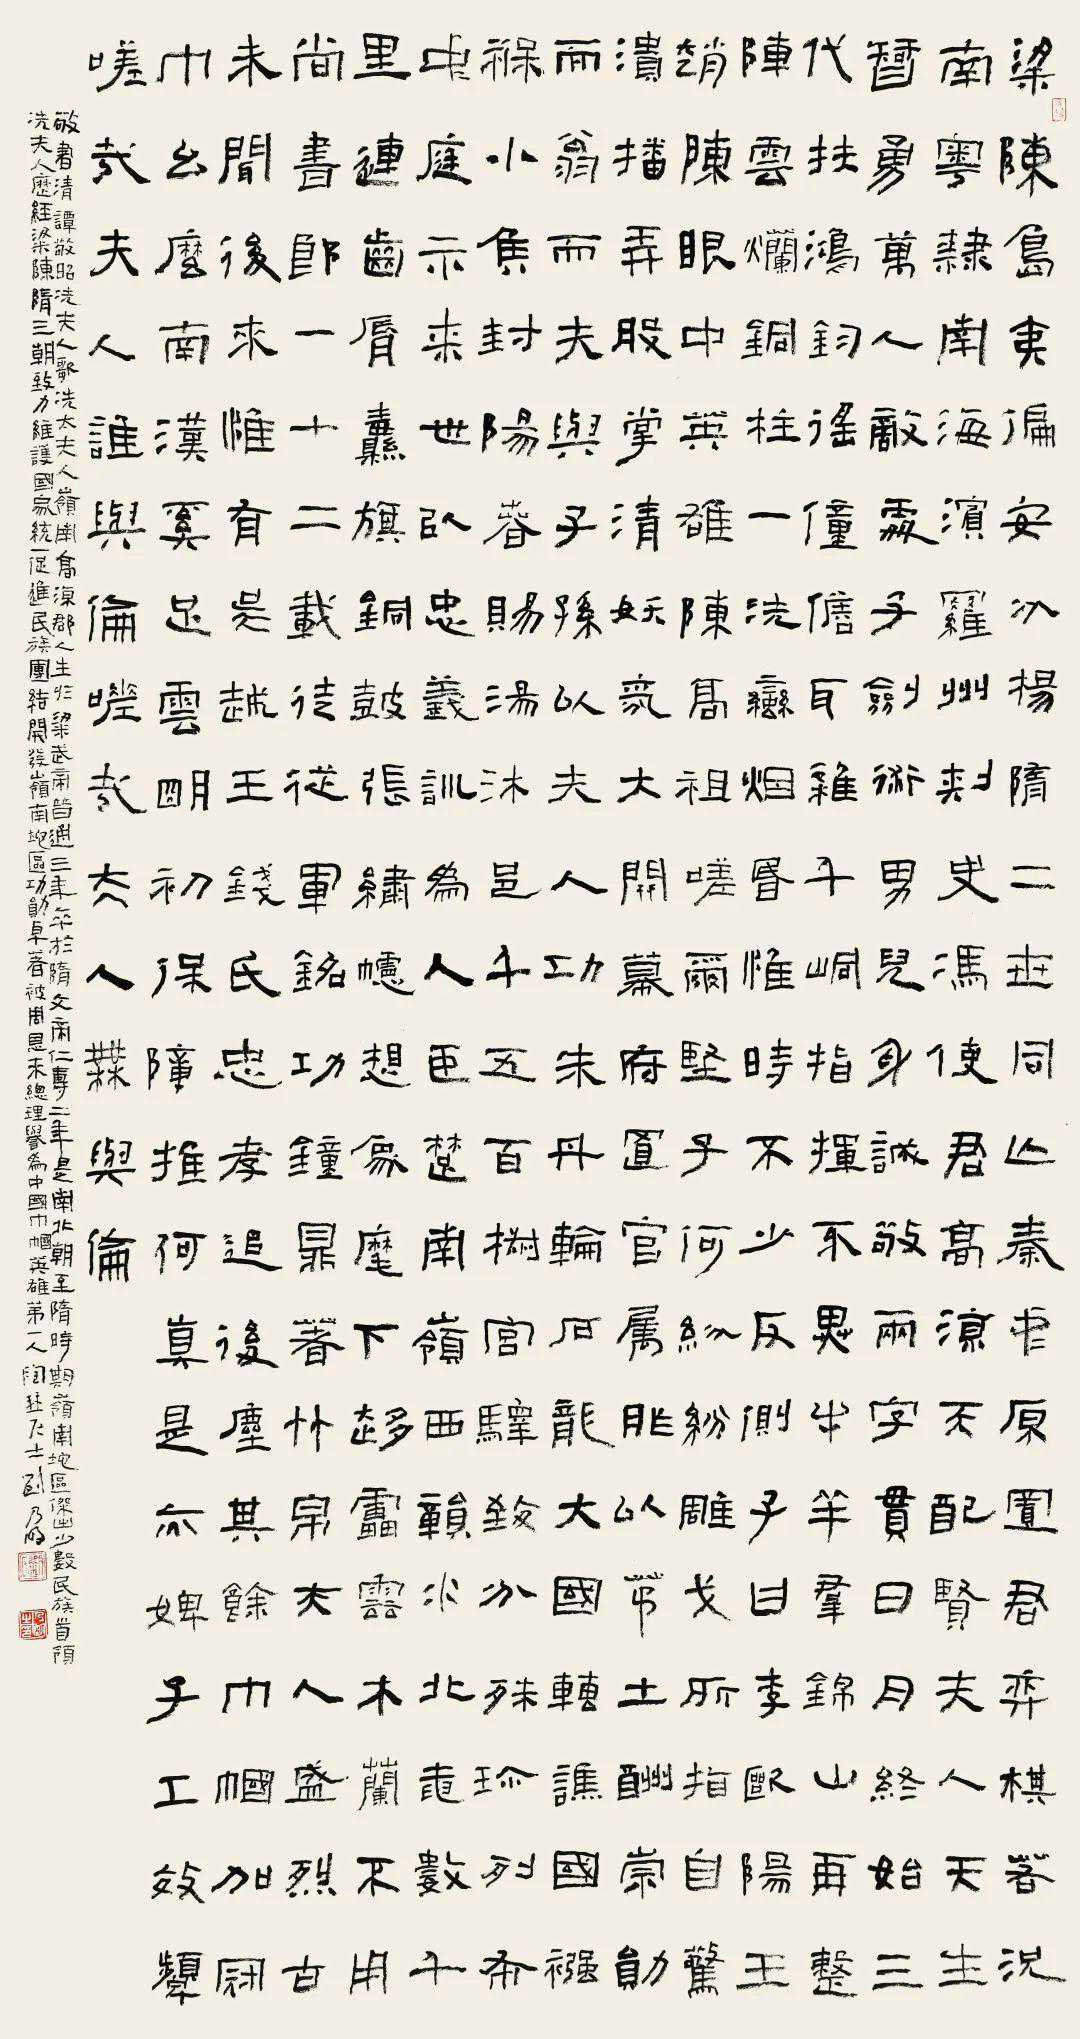 梁陳島夷偏安次楊隋二世同亡秦中原置君弈棋若況
南粵隸南海濱羅州刺史馮使君高涼天配賢夫人天生
智勇萬人敵霧子劍術男兒身誠敬兩字貫日月終始三
代扶鴻鈞徭僮儋耳雜千峒指揮不異牛羊羣錦山再整
陣雲爛銅柱一洗蠻烟昏惟時不少反側子曰李歐陽王
趙陳眼中英雄陳高祖嗟爾豎子何紛紛雕戈所指自驚
潰播弄股掌清妖氛大開幕府置官屬胙以茅土酬崇勛
而翁而夫與子孫以夫人功朱丹輪石龍大國轉譙國襁
褓小侯封陽春賜湯沐邑千五百樹宮驛致分殊珍列希
中庭示來世以忠義訓為人臣楚南嶺西贛水北黿數千
里連齒脣纛旗銅鼓張繡幰想像麾下趍靁雲木蘭不用
尚書郎一十二載徒從軍銘功鐘鼎著竹帛夫人盛烈古
未聞後來惟有吳越王錢氏忠孝追後塵其餘巾幗加冠
巾幺麼南漢奚足雲明初保障推何真是亦婢子工效顰
嗟哉夫人誰與倫嗟哉夫人誰與倫
敬書清譚敬昭冼夫人歌冼太夫人嶺南高涼郡人生於梁武帝普通三年卒於隋文帝仁壽二年是南北朝至隋時期嶺南地區傑出少數民族首領
冼夫人歷經梁陳隋三朝致力維護國家統一促進民族團結開發嶺南地區功勛卓著被周恩來總理譽為中國巾幗英雄第一人劉乃